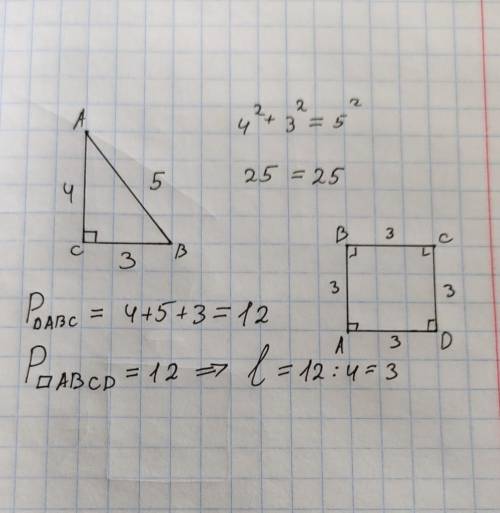 A
4
5
C
3
B
4² + 3² = 5²
25 = 25
B
3
C
3
3
A
3
D
P△ABC = 4+5+3 = 12
P□ABCD = 12 ⇒ l = 12 : 4 = 3